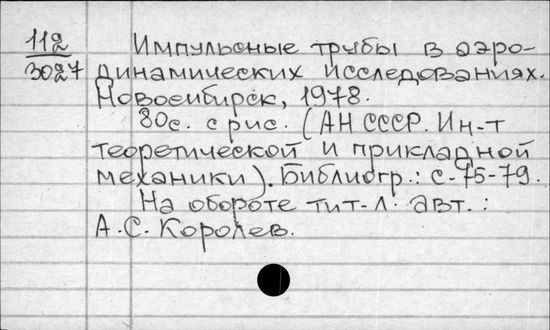 112
3027
Импульсные трубы в аэро-
динамических исследованиях.
Новосибирск, 1978.
80с. с рис. (АН СССР. Ин-т
теоретической и прикладной
механики). Библиогр.: с. 75-79.
На обороте тит. л. авт.:
А.С. Королев.